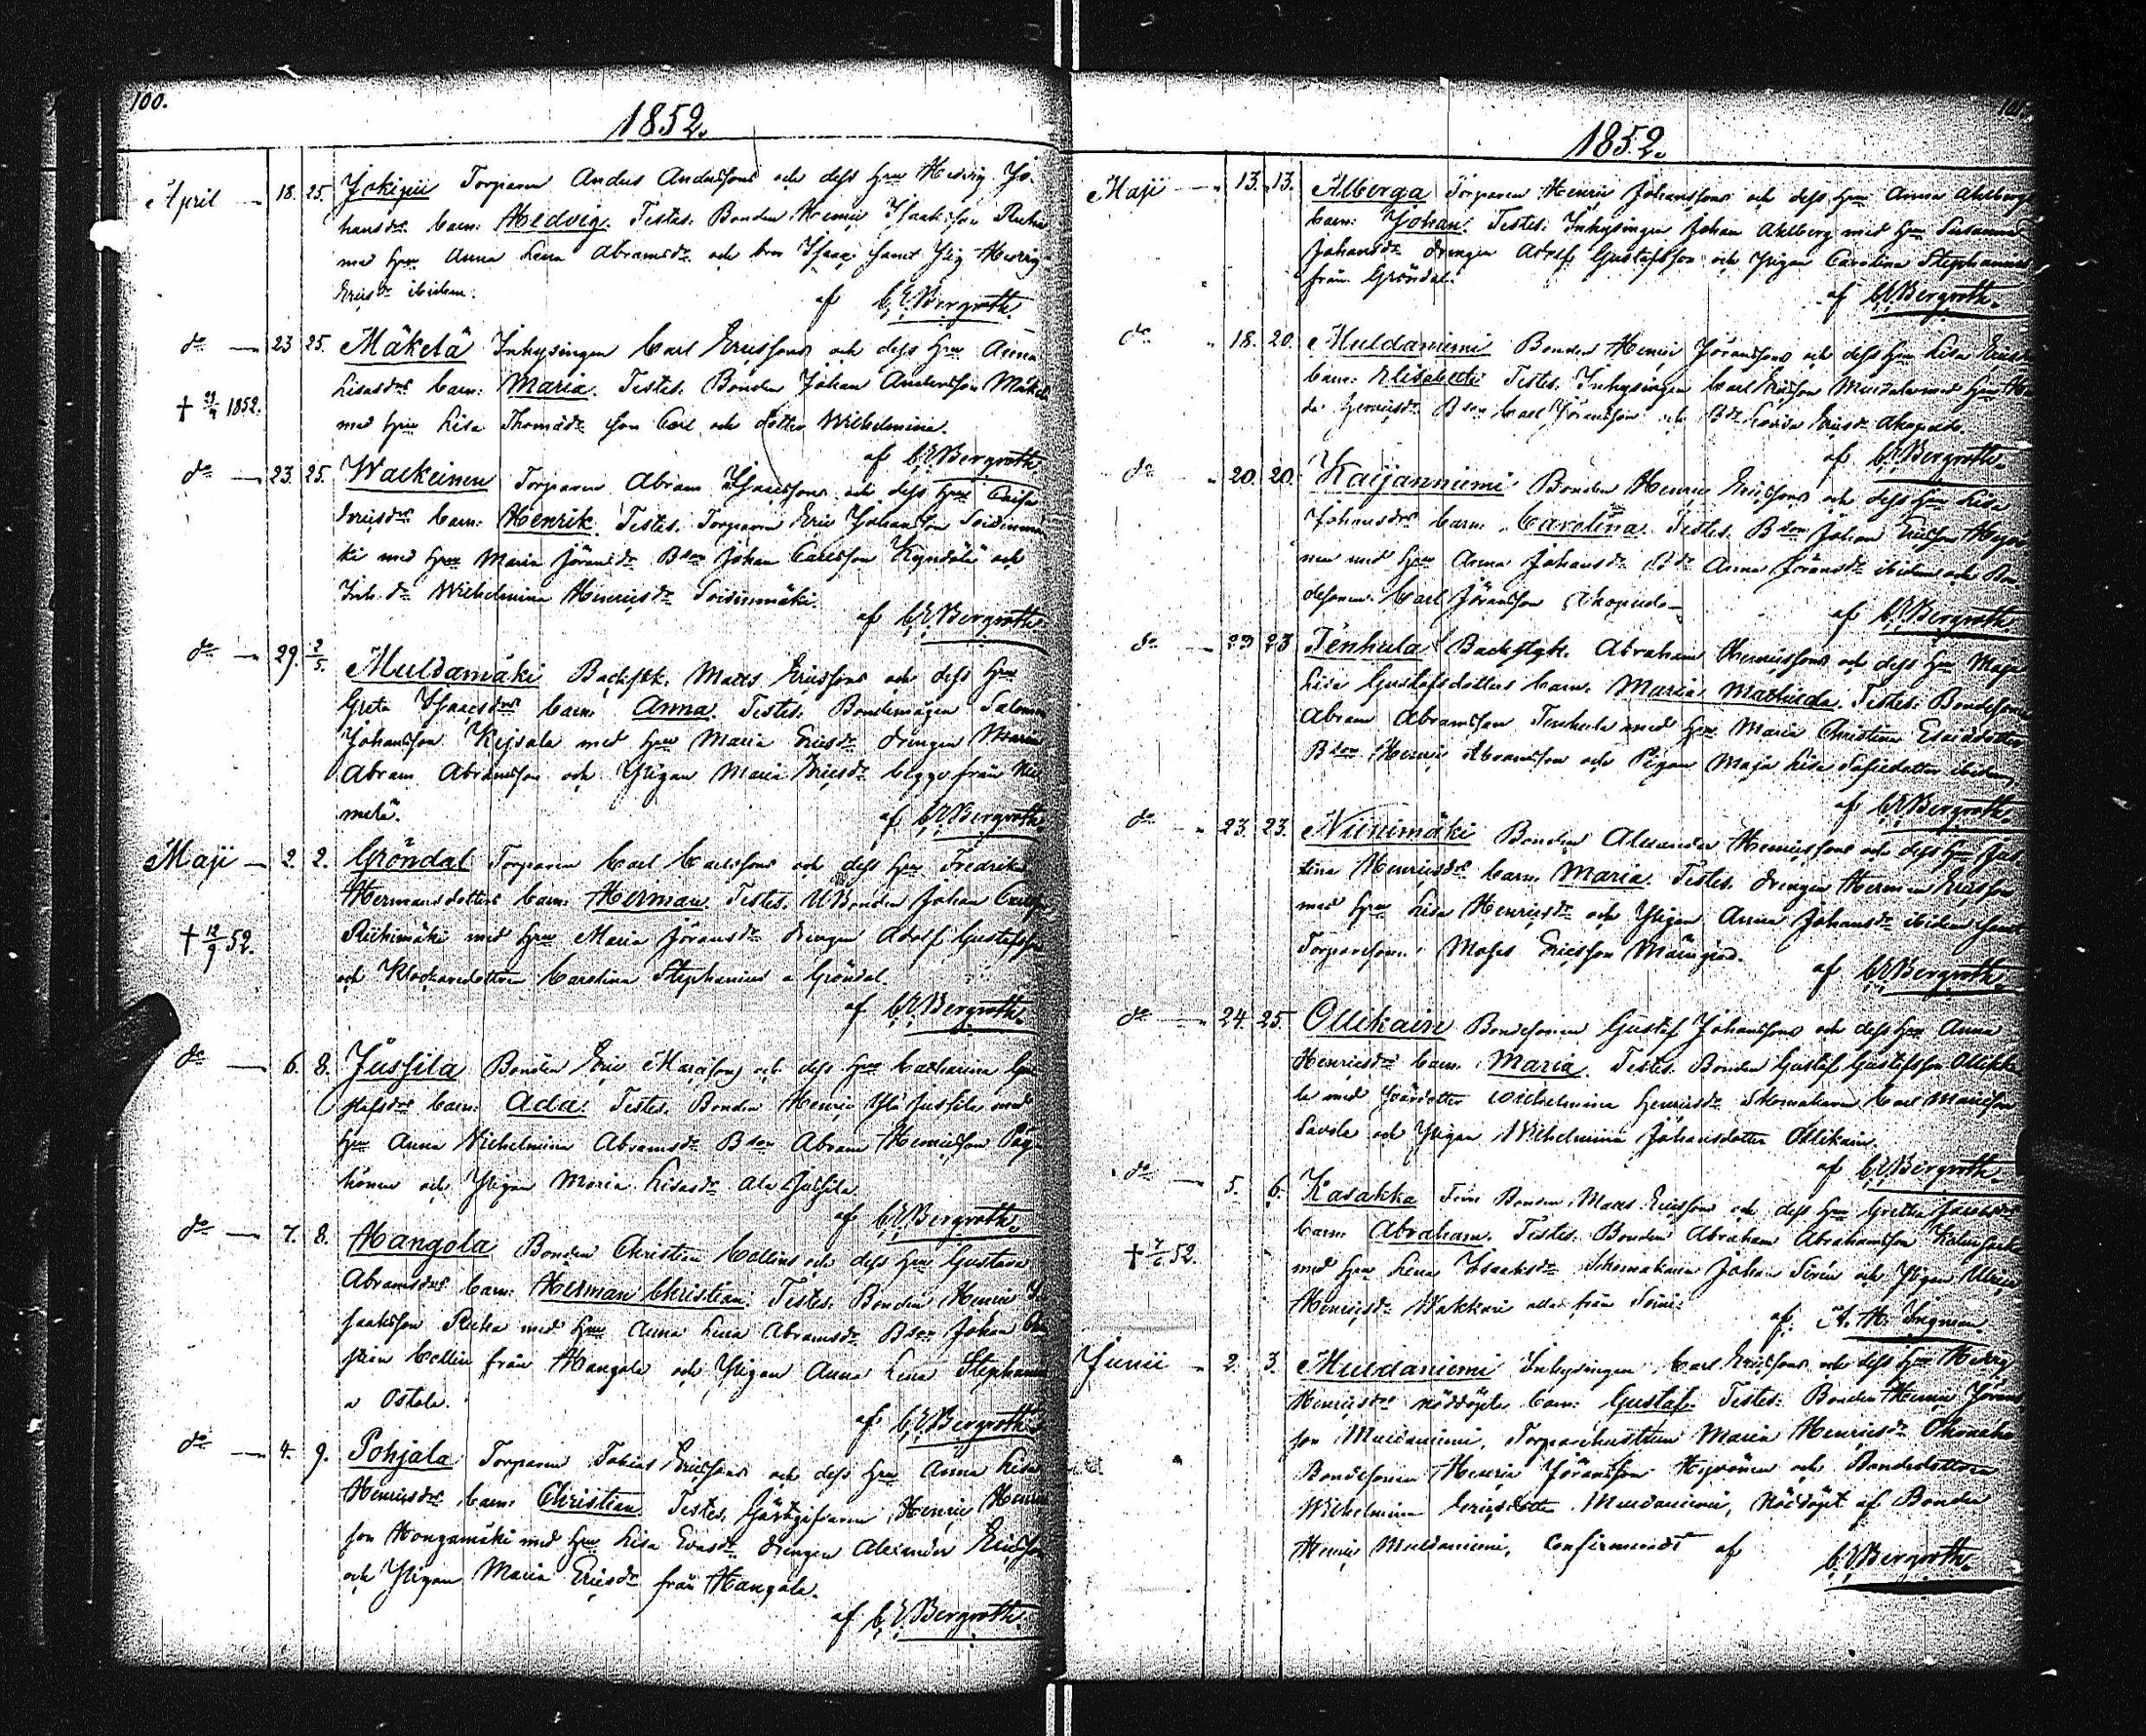 100.
1852.
April 18. 25. Jokipii Torparen Anders Anderssons och dess hru Hedvig Jo-
hansdrs barn: Hedvig. Testes: Bonden Henric Isaaksson Ruha
med hru Anna Lena Abramsdr och bror Isaac samt Pig. Hedvig
Ericsdr ibidem.
af C.E. Bergroth.
do 23 25. Mäkelä Inhysingen Carl Ericssons och dess hru Anna
Lisasdrs barn: Maria. Testes. Bonden Johan Andersson Mäkelä
† 1852. med hru Lisa Thomasdr son Carl och dotter Wilhelmina.
af C.E. Bergroth.
do 23. 25. Wackeinen Torparen Abram Isacssons och dess hru Caisa
Ericsdrs barn: Henrik. Testes. Torparen Eric Johansson
ki med hru Maria Göransdr Bson Johan Carlsson och
Inh. dr Wilhelmina Henricsdr Soidinmäki.
af C.E. Bergroth.
do 29. 2/5. Muldamäki Backstk. Matts Ericssons och dess hru
Greta Isaacsdrs barn: Anna. Testes. Bondemågen Salomon
Johansson Kejsala med hru Maria Ericsdr drengen
Abram Abramsson och Pigan Maria Ericsdr begge från Nii-
metä.
af C.E. Bergroth.
Maji 2. 2. Gröndal Torparen Carl Carlssons och dess hru Fredrika
Hermansdotters barn: Herman. Testes. Bonden Johan
† 12/9 52. Riihimäki med hru Maria Göransdr drengen Adolf Gustafsson
och Klockaredottren Carolina Stephanius a Gröndal.
af C.E. Bergroth.
do 6. 8. Jussila Bonden Eric Matssons och dess hru Catharina Gu-
stafsdrs barn: Ada. Testes. Bonden Henric Yli Jussila med
hru Anna Wilhelmina Abramsdr Bson Abram Henricsson Pöy-
hönen och Pigan Maria Lisasdr Ala Jussila.
af C.E. Bergroth.
do 7. 8. Hangola Bonden Christian Collins och dess hru Gustava
Abramsdrs barn: Herman Christian. Testes. Bonden Henric I-
saaksson Ruha med hru Anna Lena Abramsdr Bson Johan Chri-
stian Collin från Hangola och Pigan Anna Lena Stephanius
a Ostola.
af C.E. Bergroth.
do 4. 9. Pohjala Torparen Tobias Ericssons och dess hru Anna Lisa
Henricsdrs barn: Christian. Testes. Gästgifvaren Henric Henrics-
son Hongamäki med hru Lisa Evasdr drengen Alexander Ericsson
och Pigan Maria Ericsdr från Hangola.
af C.E. Bergroth.
101.
1852.
Maji 13. 13. Alberga Torparen Henric Johanssons och dess hru Anna Ahlbergs
barn: Johan. Testes. Inhysingen Johan Ahlberg med hru Susanna
Johansdr drengen Adolf Gustafsson och Pigan Carolina Stephanius
från Gröndal.
af C.E. Bergroth.
do 18. 20. Muldaniemi Bonden Henric Göranssons och dess hru Lisa Ericsdrs
barn: Elisabeth. Testes. Inhysingen Carl Ericsson med hru He-
da Henricsdr Bson Carl Göransson och Bdr Lovisa Ericsdr Akopudo.
af C.E. Bergroth.
do 20. 20. Kaijanniemi Bonden Henric Ericssons och dess hru Lisa
Johansdrs barn: Carolina. Testes. Bson Johan Ericsson Hyvö-
nen med hru Anna Johansdr Bdr Anna Göransdr ibidem och Bon-
desonen Carl Göransson Akopudo.
af C.E. Bergroth.
do 23 23 Tenhula Backstgk. Abraham Henricssons och dess hru Maja
Lisa Gustafsdotters barn: Maria Mathilda. Testes: Bondesonen
Abram Abramsson Tenhula med hru Maria Christina Esaiasdotter
Bson Henric Abramsson och Pigan Maja Lisa Sofiedotter ibidem
af C.E. Bergroth.
do 23. 23. Niinimäki Bonden Alexander Henricssons och dess hru Jus-
tina Henricsdrs barn: Maria. Testes. drengen Herman Ericsson
med hru Lisa Henricsdr och Pigan Anna Johansdr ibidem samt
Torparesonen Moses Ericsson
af C.E. Bergroth.
do 24. 25. Ollikain Bondesonen Gustaf Johanssons och dess hru Anna
Henricsdrs barn: Maria. Testes. Bonden Gustaf Gustafsson Ollikka-
la med Wilhelmina Henricsdr Skomakaren Carl Mattsson
Savola och Pigan Wilhelmina Johansdotter Ollikain.
af C.E. Bergroth.
do 5. 6. Kasakka Soini Bonden Matts Ericssons och dess hru Gretha Jacobsdrs
barn: Abraham. Testes. Bonden Abraham Abrahamsson
† 7/6 52. med hru Lena Isaaksdr Skomakaren Johan Sirén och Pigan Ulrica
Henricsdr Wakkuri alla från Soini.
af A. H. Ingman.
Junii 2. 3. Muldaniemi Inhysingen Carl Ericssons och dess hru Hedvig
Henricsdrs nöddöpta barn: Gustaf. Testes: Bonden Henric Görans-
son Muldaniemi, Torparehustrun Maria Henricsdr
Bondesonen Henric Göransson Hyvönen och Bondedottren
Wilhelmina Ericsdotter Muldaniemi, Nöddöpt af Bonden
Henric Muldaniemi, Confirmeradt af C.E. Bergroth.